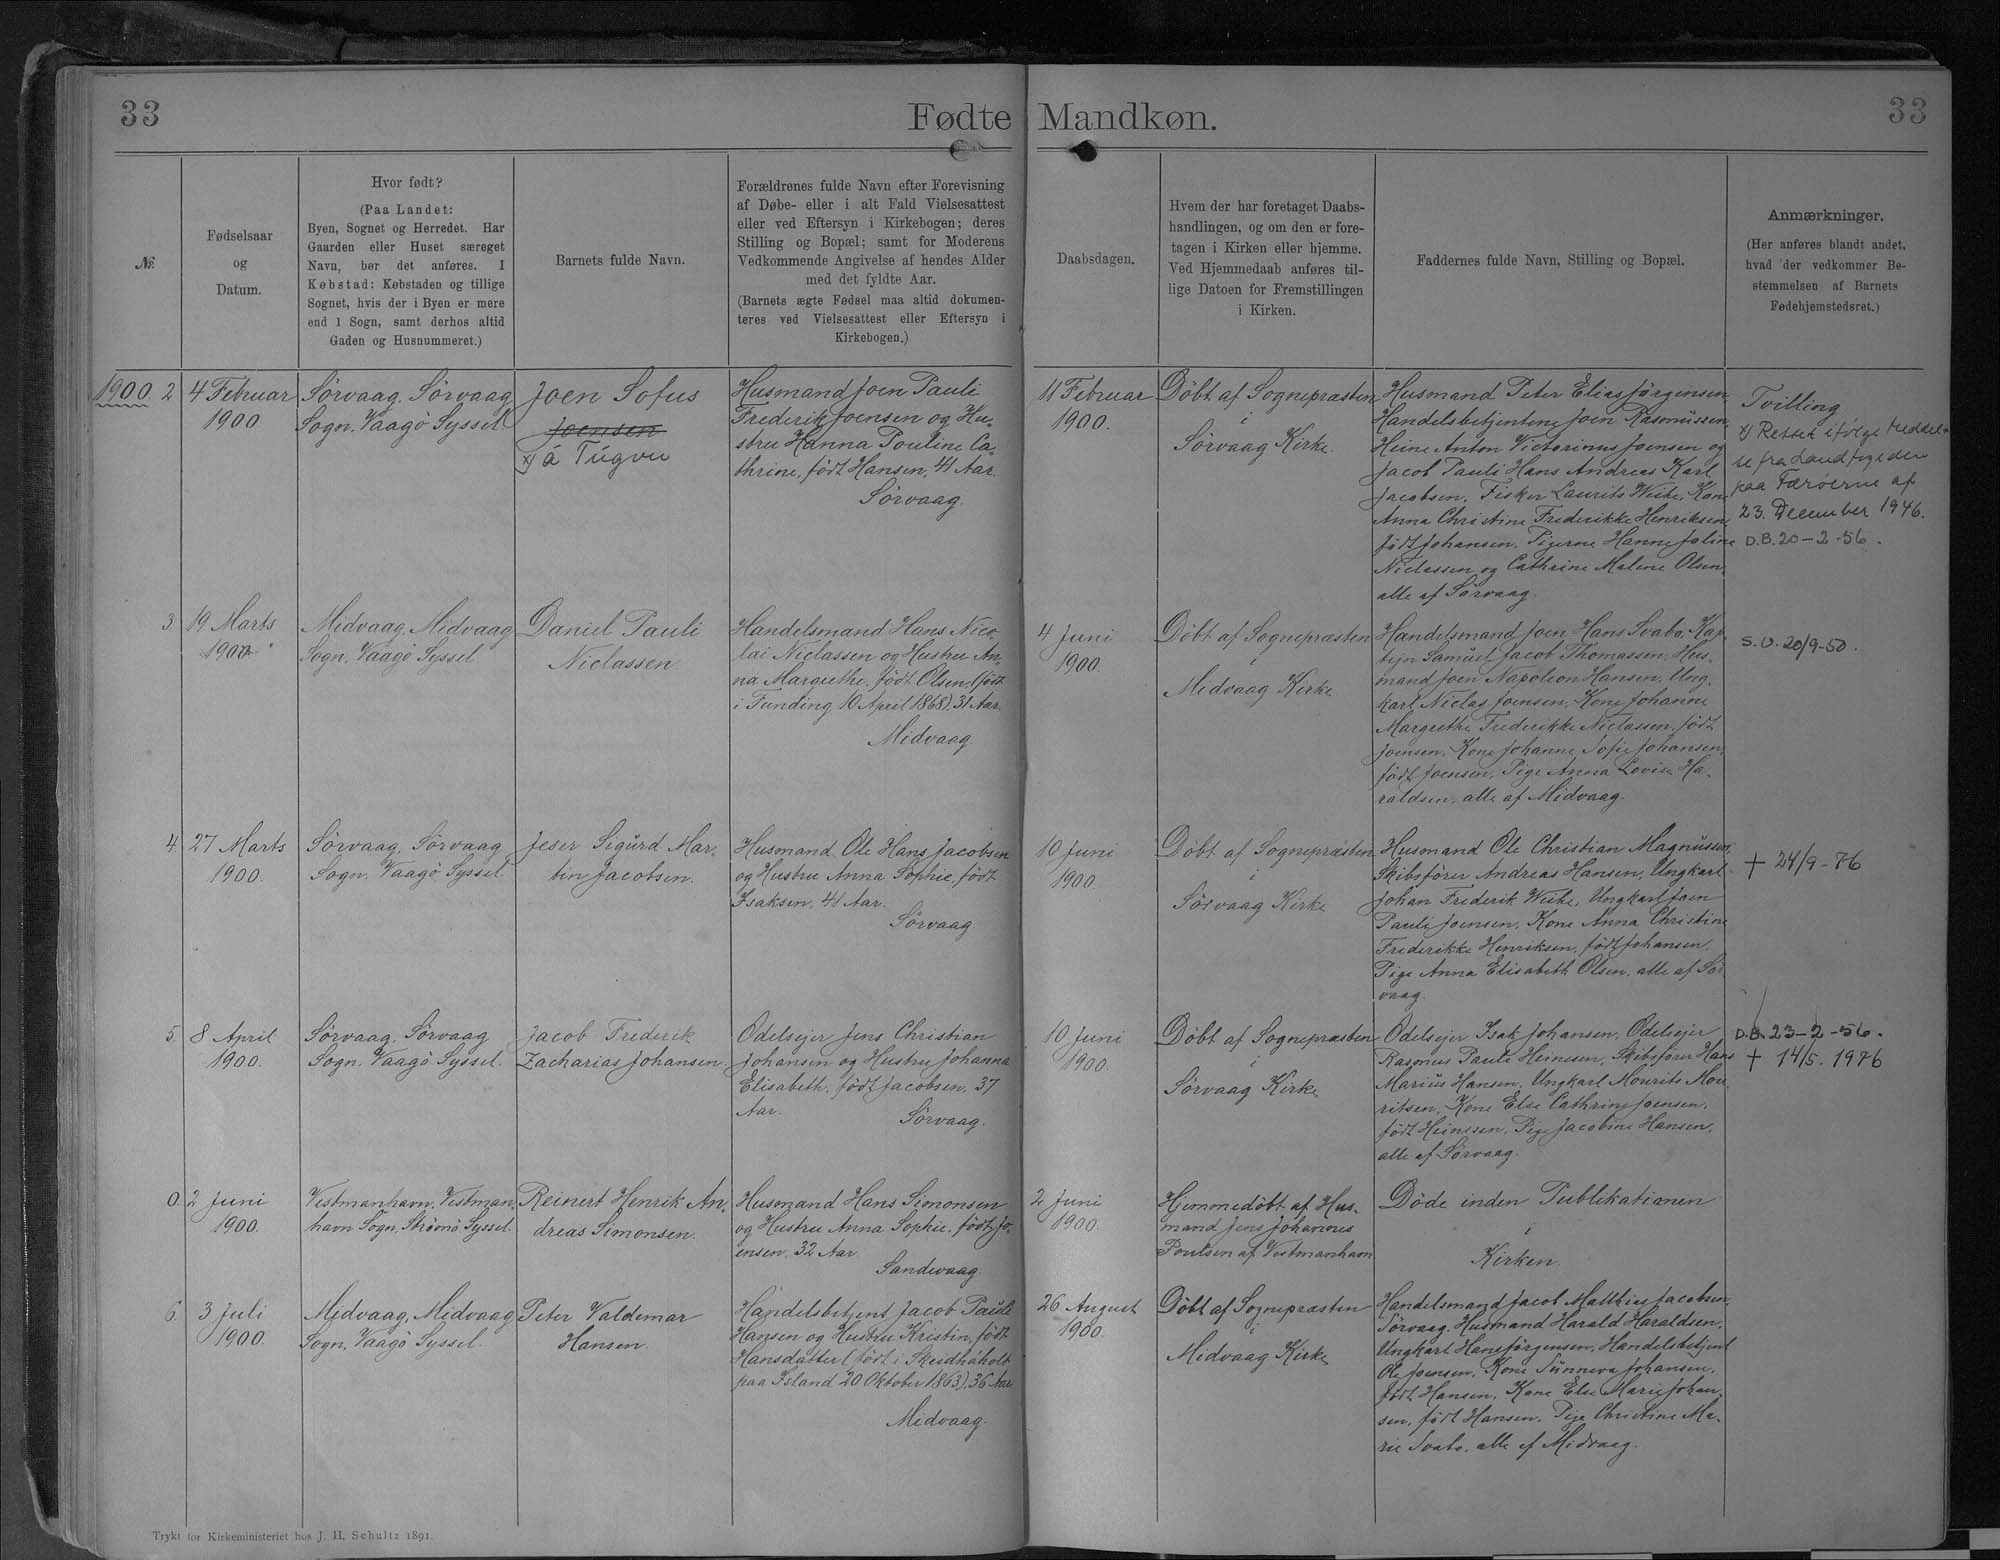 33
Fødte Mandkøn.
33
№.
Fødselsaar
og
Datum.
Hvor født?
(Paa Landet:
Byen, Sognet og Herredet. Har
Gaarden eller Huset særeget
Navn, bør det anføres. I
Købstad: Købstaden og tillige
Sognet, hvis der i Byen er mere
end 1 Sogn, samt derhos altid
Gaden og Husnummeret.)
Barnets fulde Navn.
Forældrenes fulde Navn efter Forevisning
af Døbe- eller i alt Fald Vielsesattest
eller ved Eftersyn i Kirkebogen; deres
Stilling og Bopæl; samt for Moderens
Vedkommende Angivelse af hendes Alder
med det fyldte Aar.
(Barnets ægte Fødsel maa altid dokumen-
teres ved Vielsesattest eller Eftersyn i
Kirkebogen.)
Daabsdagen.
Hvem der har foretaget Daabs-
handlingen, og om den er fore-
tagen i Kirken eller hjemme.
Ved Hjemmedaab anføres til-
lige Datoen for Fremstillingen
i Kirken.
Faddernes fulde Navn, Stilling og Bopæl.
Anmærkninger.
(Her anføres blandt andet,
hvad der vedkommer Be-
stemmelsen af Barnets
Fødehjemstedsret.)
1900. 2
4 Februar
1900
Sørvaag, Sørvaag
Sogn, Vaagø Syssel
Joen Sofus
Joensen
x) á Túgvu
Husmand Joen Pauli
Frederik Joensen og Hu-
stru Hanna Pouline Ca-
thrine, født Hansen, 41 Aar.
Sørvaag.
11 Februar
1900.
Døbt af Sognepræsten
i
Sørvaag Kirke.
Husmand Peter Elias Jørgensen,
Handelsbetjentene Joen Rasmussen,
Heine Anton Victorinus Joensen og
Jacob Pauli Hans Andreas Karl
Jacobsen, Fisker Laurits Weihe, Kone
Anna Christine Frederikke Henriksen,
født Johansen, Pigerne Hanne Joline
Niclassen og Cathrine Malene Olsen,
alle af Sørvaag.
Tvilling
x) Rettet ifølge Meddel-
se fra Landfogeden
paa Færøerne af
23. December 1946.
D.B. 20-2-56.
3.
19 Marts
1900.
Midvaag, Midvaag
Sogn, Vaagø Syssel
Daniel Pauli
Niclassen.
Handelsmand Hans Nico-
lai Niclassen og Hustru An-
na Margrethe, født Olsen, (født
i Funding 10 April 1868), 31 Aar.
Midvaag.
4 Juni
1900.
Døbt af Sognepræsten
i
Midvaag Kirke
Handelsmand Joen Hans Svabo, Kap-
tejn Samuel Jacob Thomassen, Hus-
mand Joen Napoleon Hansen, Ung-
karl Niclas Joensen, Kone Johanne
Margrethe Frederikke Niclassen, født
Joensen, Kone Johanne Sofie Johansen,
født Joensen, Pige Anna Lovise Ha-
raldsen, alle af Midvaag.
S.U. 20/9-50.
4.
27 Marts
1900.
Sørvaag, Sørvaag
Sogn, Vaagø Syssel.
Jeser Sigurd Mar-
tin Jacobsen.
Husmand Ole Hans Jacobsen
og Hustru Anna Sophie, født
Isaksen, 41 Aar.
Sørvaag
10 Juni
1900.
Døbt af Sognepræsten
i
Sørvaag Kirke
Husmand Ole Christian Magnussen,
Skibsfører Andreas Hansen, Ungkarl
Johan Frederik Weihe, Ungkarl Joen
Pauli Joensen, Kone Anna Christine
Frederikke Henriksen, født Johansen,
Pige Anna Elisabeth Olsen, alle af Sør-
vaag.
+ 24/9-76
5.
8 April
1900.
Sørvaag, Sørvaag
Sogn, Vaagø Syssel.
Jacob Frederik
Zacharias Johansen.
Odelsejer Jens Christian
Johansen og Hustru Johanna
Elisabeth, født Jacobsen, 37
Aar.
Sørvaag.
10 Juni
1900.
Døbt af Sognepræsten
i
Sørvaag Kirke
Odelsejer Isak Johansen, Odelsejer
Rasmus Pauli Heinesen, Skibsfører Hans
Marius Hansen, Ungkarl Mourits Mou-
ritsen, Kone Else Cathrine Joensen,
født Heinesen, Pige Jacobine Hansen,
alle af Sørvaag.
D.B. 23-2-56.
+ 14/5. 1976
0.
2 Juni
1900.
Vestmanhavn, Vestman-
havn Sogn, Strømø Syssel.
Reinert Henrik An-
dreas Simonsen.
Husmand Hans Simonsen
og Hustru Anna Sophie, født Jo-
ensen, 32 Aar.
Sandevaag.
2 Juni
1900.
Hjemmedøbt af Hus-
mand Jens Johannes
Poulsen af Vestmanhavn
Døde inden Publikationen
i
Kirken.
6.
3 Juli
1900.
Midvaag, Midvaag
Sogn, Vaagø Syssel.
Peter Valdemar
Hansen.
Handelsbetjent Jacob Pauli
Hansen og Hustru Kristin, født
Hansdatter (født i Skeidháholt
paa Island 20 Oktober 1863), 36 Aar
Midvaag.
26 August
1900.
Døbt af Sognepræsten
i
Midvaag Kirke
Handelsmand Jacob Matthias Jacobsen,
Sørvaag, Husmand Harald Haraldsen,
Ungkarl Hans Jørgensen, Handelsbetjent
Ole Joensen, Kone Sunneva Johansen,
født Hansen, Kone Else Marie Johan-
sen, født Hansen, Pige Christine Ma-
rie Svabo, alle af Midvaag.
Trykt for Kirkeministeriet hos J. H. Schultz 1891.